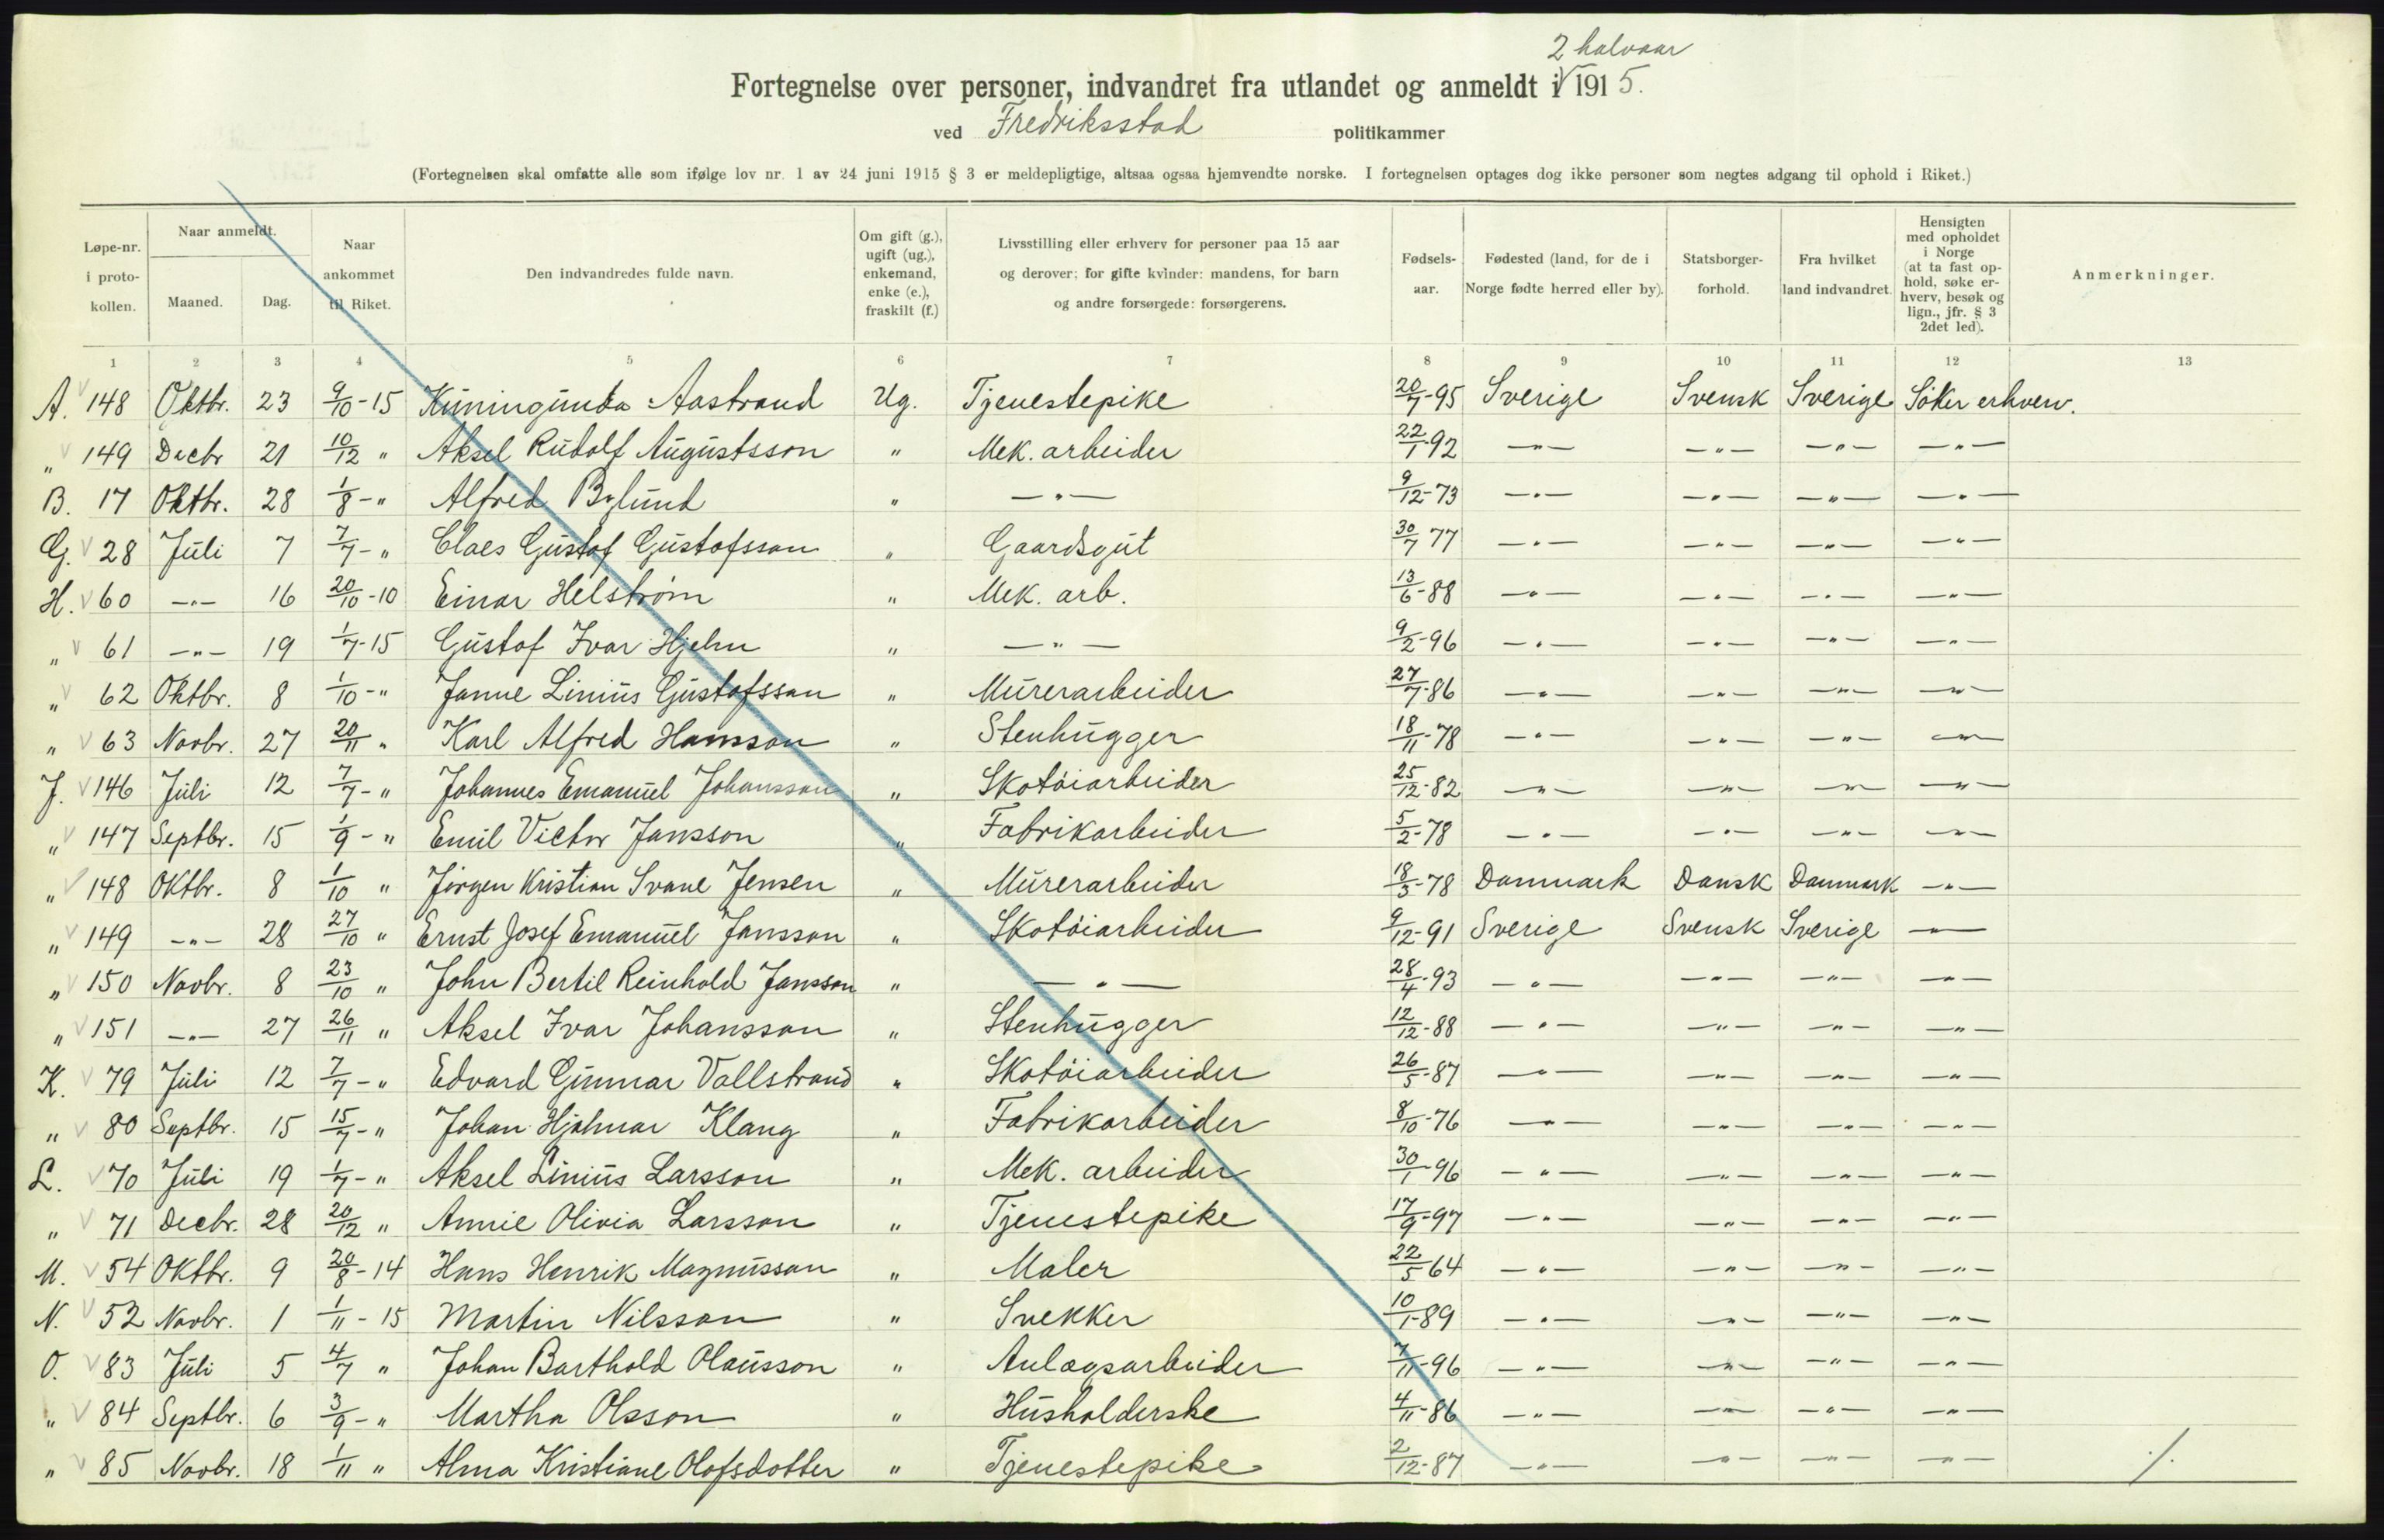 2 halvaar
Fortegnelse over personer, indvandret fra utlandet og anmeldt i √ 1915.
ved Fredriksstad politikammer
(Fortegnelsen skal omfatte alle som ifølge lov nr. 1 av 24 juni 1915 § 3 er meldepligtige, altsaa ogsaa hjemvendte norske. I fortegnelsen optages dog ikke personer som negtes adgang til ophold i Riket.)
Løpe-nr. i proto-kollen.
Naar anmeldt.
Maaned.
Dag.
Naar ankommet til Riket.
Den indvandredes fulde navn.
Om gift (g.), ugift (ug.), enkemand, enke (e.), fraskilt (f.)
Livsstilling eller erhverv for personer paa 15 aar og derover; for gifte kvinder: mandens, for barn og andre forsørgede: forsørgerens.
Fødsels-aar.
Fødested (land, for de i Norge fødte herred eller by).
Statsborger-forhold.
Fra hvilket land indvandret.
Hensigten med opholdet i Norge (at ta fast op-hold, søke er-hverv, besøk og lign., jfr. § 3 2det led).
Anmerkninger.
1 2 3 4 5 6 7 8 9 10 11 12 13
A. √ 148 Oktbr. 23 9/10-15 Kuningunda Aastrand Ug. Tjenestepike 20/7-95 Sverige Svensk Sverige Söker erhverv.
" √ 149 Decbr 21 10/12 " Aksel Rudolf Augustsson " Mek. arbeider 22/1-92 —"— —"— —"— —"—
B. 17 Oktbr. 28 1/8-" Alfred Bylund " —"— 9/12-73 —"— —"— —"— —"—
G. √ 28 Juli 7 7/7-" Claes Gustaf Gustafsson " Gaardsgut 30/7 77 —"— —"— —"— —"—
H. √ 60 —"— 16 20/10-10 Einar Helström " Mek. arb. 13/6-88 —"— —"— —"— —"—
" √ 61 —"— 19 1/7-15 Gustaf Ivar Hjelm " —"— 9/2-96 —"— —"— —"— —"—
" √ 62 Oktbr. 8 1/10-" Janne Linius Gustafsson " Murerarbeider 27/7-86 —"— —"— —"— —"—
" √ 63 Novbr. 27 20/11 " Karl Alfred Hansson " Stenhugger 18/11-78 —"— —"— —"— —"—
J. √ 146 Juli 12 7/7-" Johannes Emanuel Johansson " Skotöiarbeider 25/12-82 —"— —"— —"— —"—
" √ 147 Septbr. 15 1/9-" Emil Victor Jansson " Fabrikarbeider 5/2-78 —"— —"— —"— —"—
" √ 148 Oktbr. 8 1/10 " Jörgen Kristian Svane Jensen " Murerarbeider 18/3-78 Danmark Dansk Danmark —"—
" √ 149 —"— 28 27/10 " Ernst Josef Emanuel Jansson " Skotöiarbeider 9/12-91 Sverige Svensk Sverige —"—
" √ 150 Novbr. 8 23/10 " John Bertil Reinhold Jansson " —"— 28/4-93 —"— —"— —"— —"—
" √ 151 —"— 27 26/11 " Aksel Ivar Johansson " Stenhugger 12/12-88 —"— —"— —"— —"—
K. √ 79 Juli 12 7/7-" Edvard Gunnar Vallstrand " Skotöiarbeider 26/5-87 —"— —"— —"— —"—
" √ 80 Septbr. 15 15/7-" Johan Hjalmar Klang " Fabrikarbeider 8/10-76 —"— —"— —"— —"—
L. √ 70 Juli 19 1/7-" Aksel Linius Larsson " Mek. arbeider 30/1-96 —"— —"— —"— —"—
" √ 71 Decbr. 28 20/12 " Annie Olivia Larsson " Tjenestepike 17/9-97 —"— —"— —"— —"—
M. √ 54 Oktbr. 9 20/8-14 Hans Henrik Magnusson " Maler 22/5 64 —"— —"— —"— —"—
N. √ 52 Novbr. 1 1/11-15 Martin Nilsson " Snekker 10/1-89 —"— —"— —"— —"—
O. √ 83 Juli 5 4/7 " Johan Barthold Olausson " Anlægsarbeider 7/11-96 —"— —"— —"— —"—
" √ 84 Septbr. 6 3/9-" Martha Olsson " Husholderske 4/11-86 —"— —"— —"— —"—
" √ 85 Novbr. 18 1/11 " Alma Kristiane Olofsdotter " Tjenestepike 2/12-87 —"— —"— —"— —"— ./.